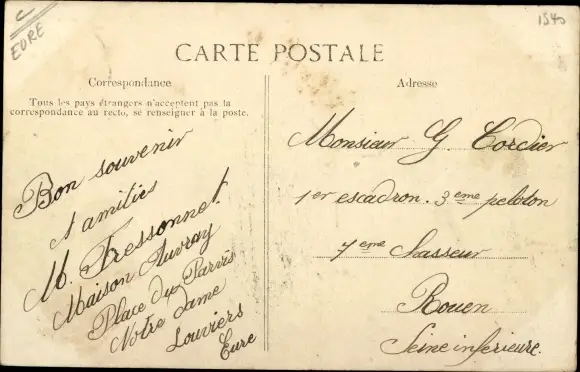 C
EURE
1540
CARTE POSTALE
Correspondance
Tous les pays étrangers n'acceptent pas la
correspondance au recto, se renseigner à la poste.
Bon souvenir
et amitiés
M. Fressonnet
Maison Auvray
Place du Parvis
Notre Dame
Louviers
Eure
Adresse
Monsieur G. Cordier
1er escadron. 3eme peloton
7eme Chasseur
Rouen
Seine inférieure.